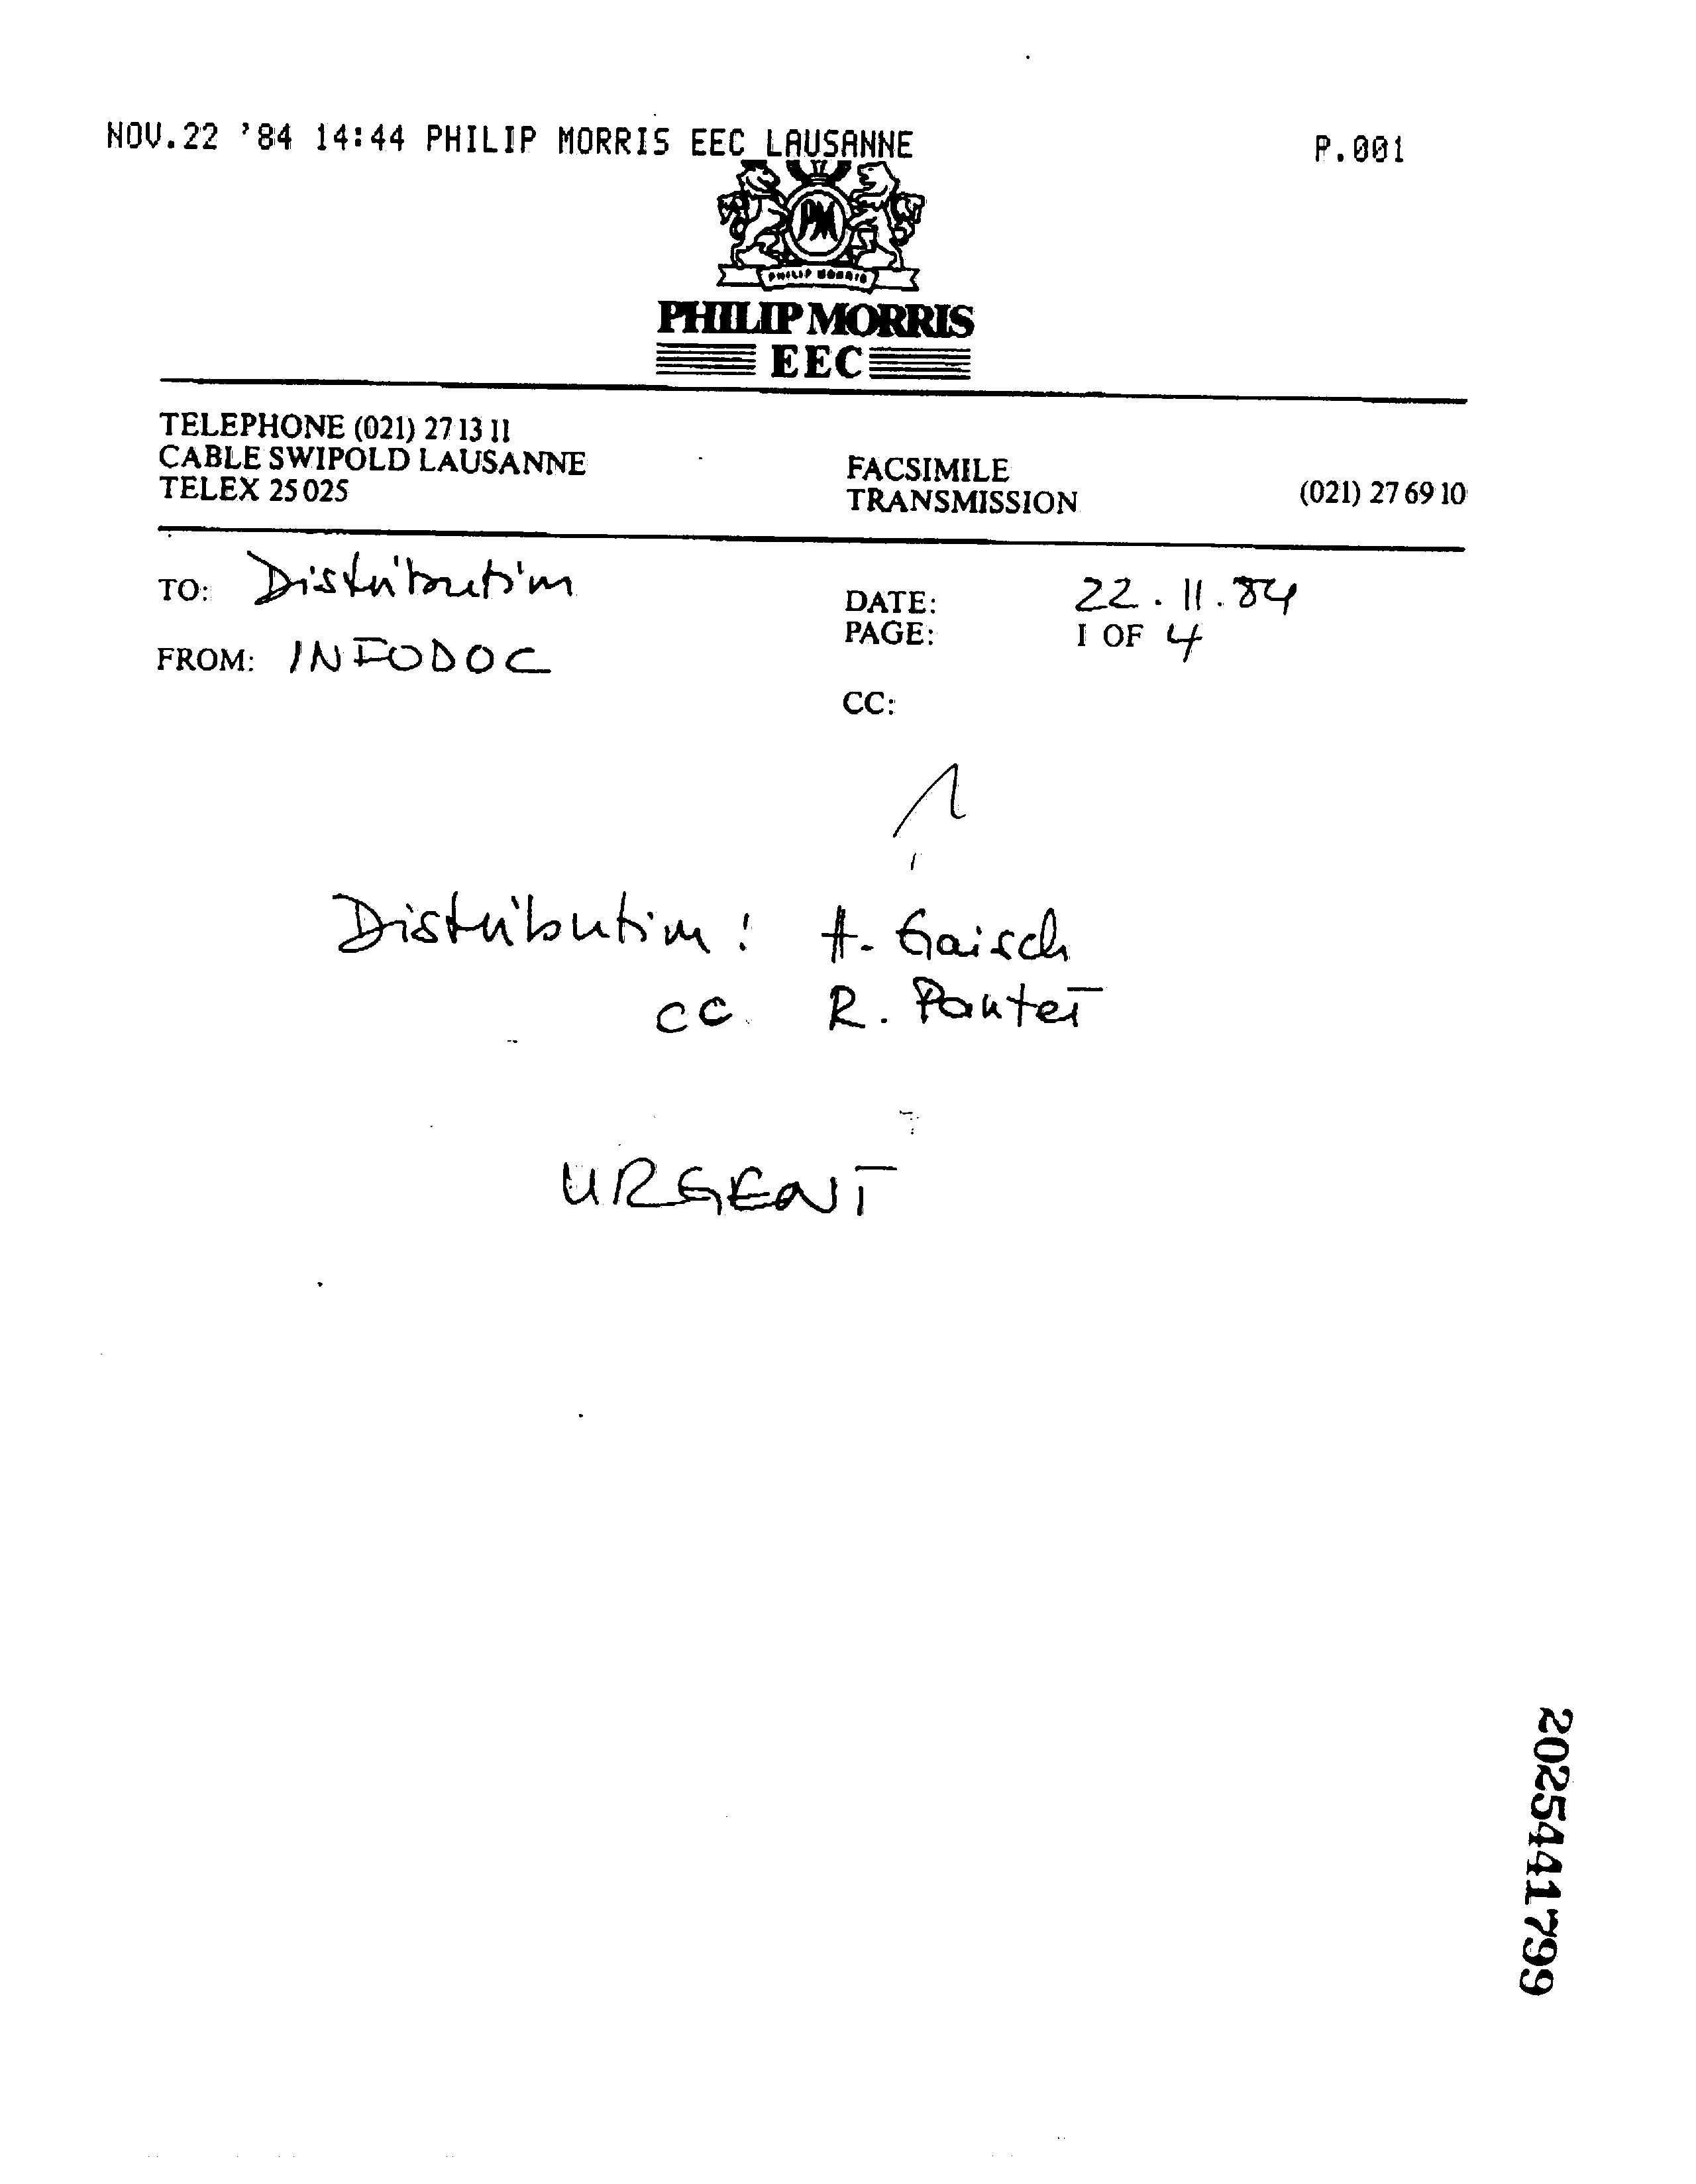 NOV.22 '84 14:44 PHILIP MORRIS EEC LAUSANNE P.001
PM
PHILIP MORRIS
PHILIP MORRIS
EEC
TELEPHONE (021) 27 13 11
CABLE SWIPOLD LAUSANNE
TELEX 25 025
FACSIMILE
TRANSMISSION (021) 27 69 10
TO: Distribution
FROM: INFODOC
DATE: 22.11.84
PAGE: 1 OF 4
CC:
Distribution: H. Gaisch
cc. R. Pantet
URGENT
2025441799